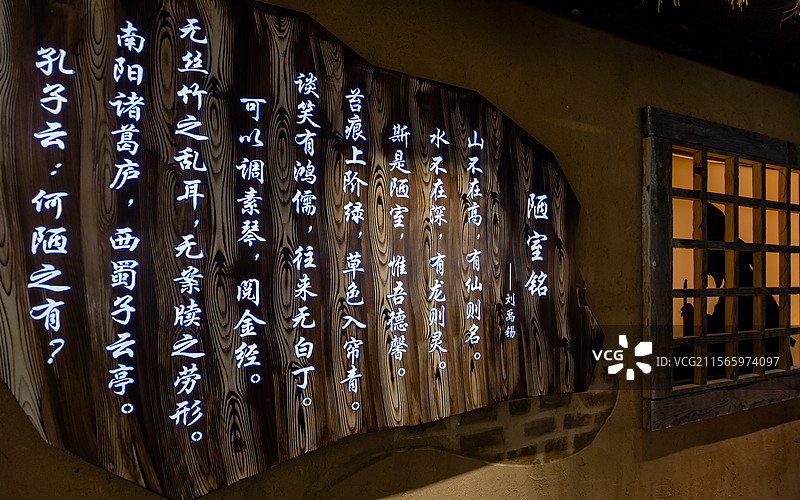 陋室铭
——刘禹锡
山不在高，有仙则名。
水不在深，有龙则灵。
斯是陋室，惟吾德馨。
苔痕上阶绿，草色入帘青。
谈笑有鸿儒，往来无白丁。
可以调素琴，阅金经。
无丝竹之乱耳，无案牍之劳形。
南阳诸葛庐，西蜀子云亭。
孔子云：何陋之有？
VCG
ID:VCG211565974097